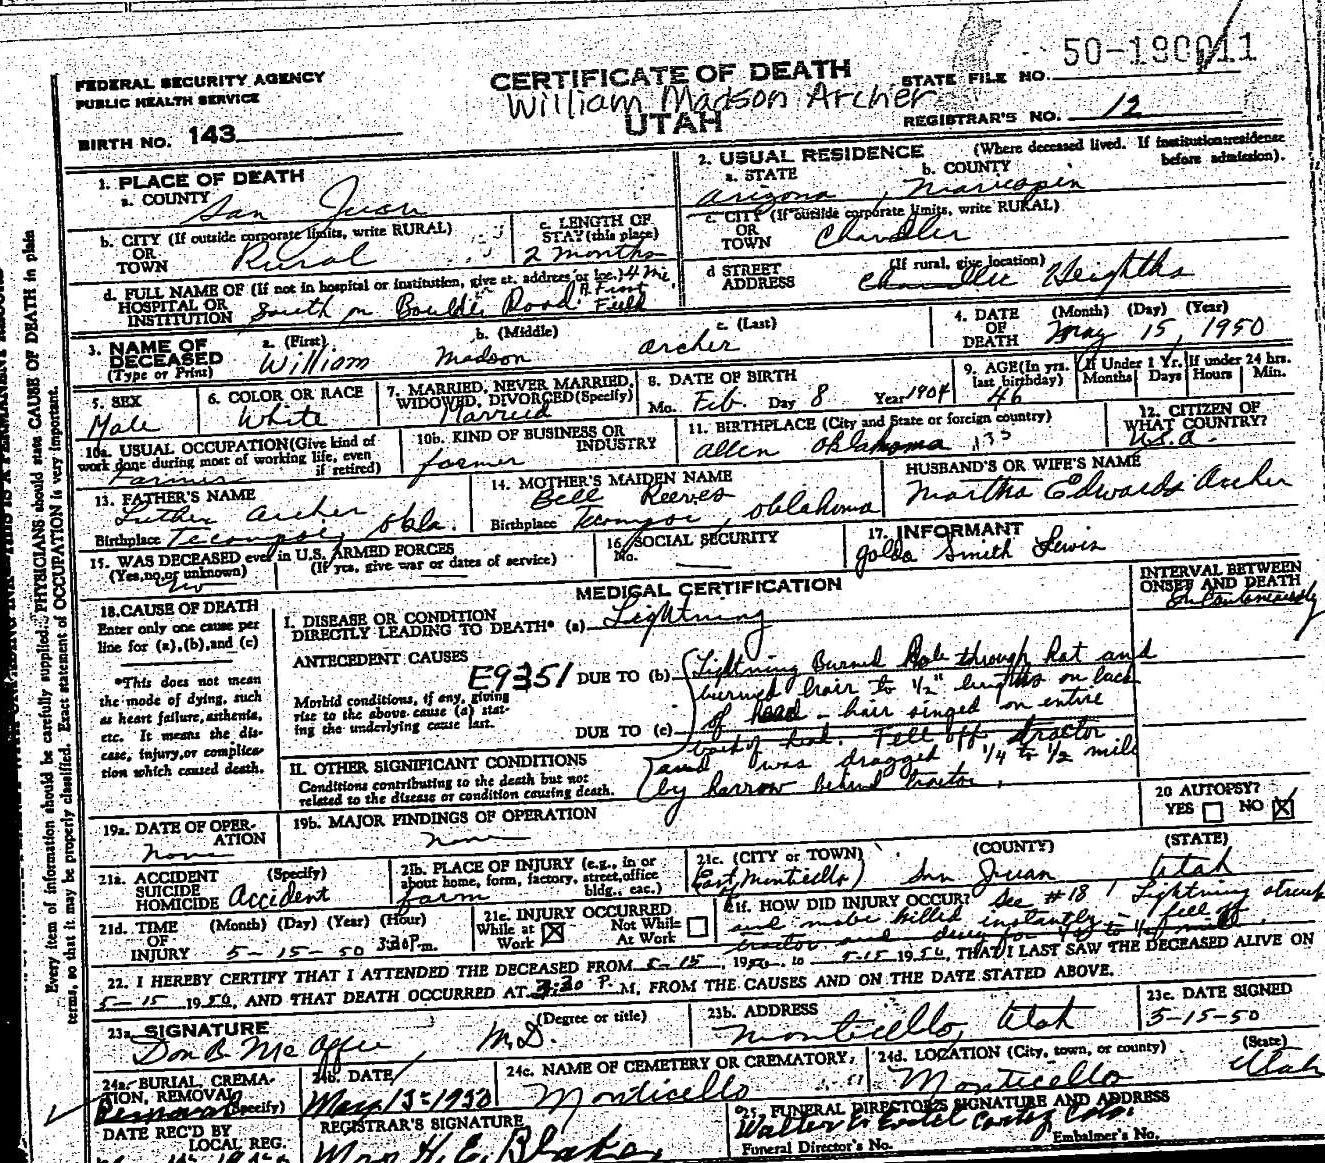 50-180011
FEDERAL SECURITY AGENCY
PUBLIC HEALTH SERVICE
BIRTH NO. 143
CERTIFICATE OF DEATH
William Madson Archer
UTAH
STATE FILE NO.
REGISTRAR'S NO. 12
1. PLACE OF DEATH
a. COUNTY San Juan
b. CITY (If outside corporate limits, write RURAL)
OR
TOWN Rural
c. LENGTH OF
STAY (this place)
2 months
d. FULL NAME OF (If not in hospital or institution, give st. address or loc.) 4 mi.
HOSPITAL OR
INSTITUTION South on Boulder Road Field
2. USUAL RESIDENCE (Where deceased lived. If institution: residence
before admission).
a. STATE Arizona
b. COUNTY Maricopa
c. CITY (If outside corporate limits, write RURAL)
OR
TOWN Chandler
d STREET (If rural, give location)
ADDRESS Chandler Heights
3. NAME OF
DECEASED
(Type or Print)
a. (First) William
b. (Middle) Madson
c. (Last) Archer
4. DATE (Month) (Day) (Year)
OF
DEATH May 15, 1950
5. SEX
Male
6. COLOR OR RACE
White
7. MARRIED, NEVER MARRIED,
WIDOWED, DIVORCED (Specify)
Married
8. DATE OF BIRTH
Mo. Feb. Day 8 Year 1904
9. AGE (In yrs.
last birthday)
46
If Under 1 Yr.
Months Days
If under 24 hrs.
Hours Min.
10a. USUAL OCCUPATION (Give kind of
work done during most of working life, even
if retired)
Farmer
10b. KIND OF BUSINESS OR
INDUSTRY
farmer
11. BIRTHPLACE (City and State or foreign country)
Allen Oklahoma 135
12. CITIZEN OF
WHAT COUNTRY?
U.S.A.
13. FATHER'S NAME
Luther Archer
Birthplace Okla.
14. MOTHER'S MAIDEN NAME
Bell Reeves
Birthplace Oklahoma
HUSBAND'S OR WIFE'S NAME
Martha Edwards Archer
15. WAS DECEASED ever in U.S. ARMED FORCES
(Yes, no, or unknown) (If yes, give war or dates of service)
No
16. SOCIAL SECURITY
No.
17. INFORMANT
Golda Smith Lewis
MEDICAL CERTIFICATION
INTERVAL BETWEEN
ONSET AND DEATH
18. CAUSE OF DEATH
Enter only one cause per
line for (a), (b), and (c)
*This does not mean
the mode of dying, such
as heart failure, asthenia,
etc. It means the dis-
ease, injury, or complica-
tion which caused death.
I. DISEASE OR CONDITION
DIRECTLY LEADING TO DEATH* (a) Lightning
ANTECEDENT CAUSES
E9351
Morbid conditions, if any, giving
rise to the above cause (a) stat-
ing the underlying cause last.
DUE TO (b) Lightning Burned Hole through hat and
burned hair to 1/2" lengths on back
DUE TO (c) of head - hair singed on entire
back of head. Fell off tractor
II. OTHER SIGNIFICANT CONDITIONS
Conditions contributing to the death but not
related to the disease or condition causing death.
and was dragged 1/4 to 1/2 mile
by harrow behind tractor.
19a. DATE OF OPER-
ATION
none
19b. MAJOR FINDINGS OF OPERATION
none
20 AUTOPSY?
YES NO X
21a. ACCIDENT (Specify)
SUICIDE
HOMICIDE Accident
21b. PLACE OF INJURY (e.g., in or
about home, form, factory, street, office
bldg., eac.)
farm
21c. (CITY or TOWN) (COUNTY) (STATE)
East of Monticello San Juan Utah
21d. TIME (Month) (Day) (Year) (Hour)
OF
INJURY 5-15-50 3:30 P.m.
21e. INJURY OCCURRED
While at Work X Not While At Work
21f. HOW DID INJURY OCCUR? See #18 Lightning struck
and killed instantly - fell off
tractor and drug for 1/4 to 1/2 mile
22. I HEREBY CERTIFY THAT I ATTENDED THE DECEASED FROM 5-15, 1950, to 5-15 1950, THAT I LAST SAW THE DECEASED ALIVE ON
5-15 1950, AND THAT DEATH OCCURRED AT 3:30 P. M, FROM THE CAUSES AND ON THE DATE STATED ABOVE.
23a. SIGNATURE (Degree or title)
Don B. M.D.
23b. ADDRESS
Monticello, Utah
23c. DATE SIGNED
5-15-50
24a. BURIAL, CREMA-
TION, REMOVAL (Specify)
Removal
24b. DATE
May 15 1950
24c. NAME OF CEMETERY OR CREMATORY
Monticello
24d. LOCATION (City, town, or county) (State)
Monticello Utah
DATE REC'D BY
LOCAL REG.
REGISTRAR'S SIGNATURE
Mrs H. E. Blake
25. FUNERAL DIRECTOR'S SIGNATURE AND ADDRESS
Walter Cortez Colo.
Funeral Director's No. Embalmer's No.
Every item of information should be carefully supplied. PHYSICIANS should state CAUSE OF DEATH in plain
terms, so that it may be properly classified. Exact statement of OCCUPATION is very important.